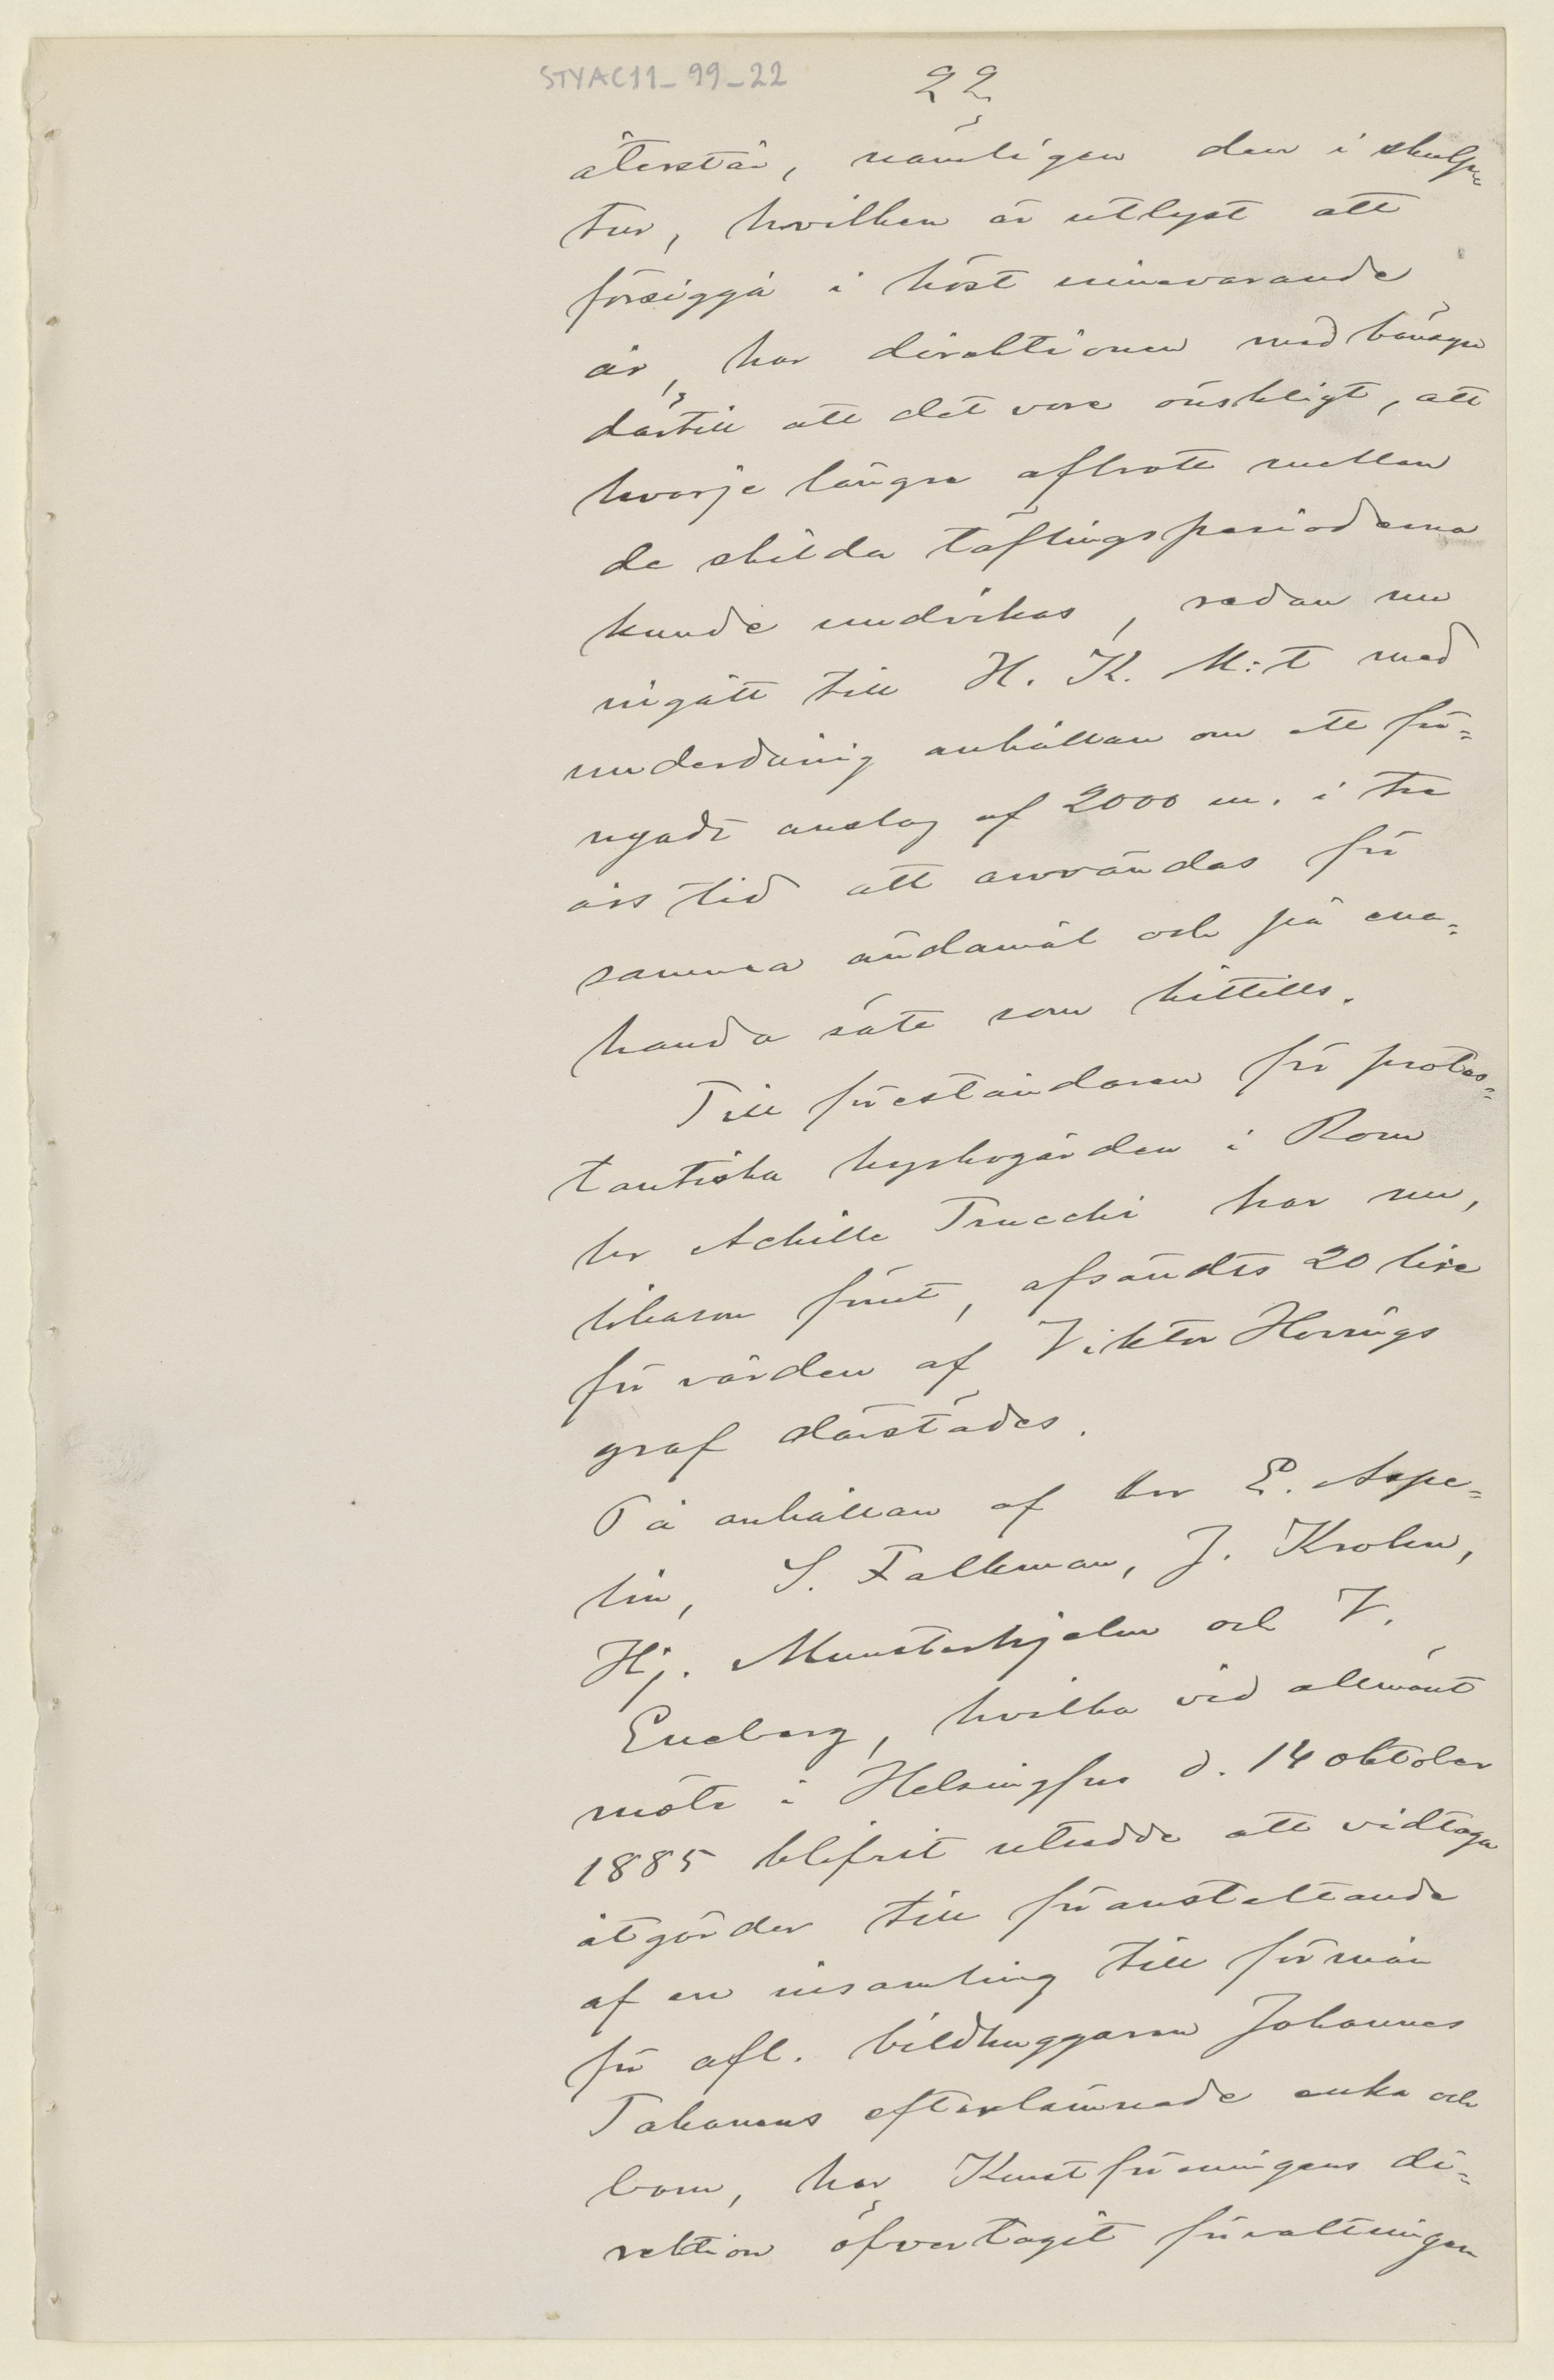 STYAC11_99_22
22
återstår, nämligen den i skulp-
tur, hvilken är utlyst att
försiggå i höst innevarande
år, har direktionen med
därtill att det vore önskligt, att
hvarje längre afbrott mellan
de skilda täflingsperioderna
kunde undvikas, redan nu
ingått till H. K. M:t med
underdånig anhållan om ett för-
nyadt anslag af 2000 m. i tre
års tid att användas för
samma ändamål och på ena-
handa sätt som hittills.
Till föreståndaren för protes-
tantiska kyrkogården i Rom
hr Achille Trucchi har nu,
likasom förut, afsändts 20 lire
för vården af Viktor Hovings
graf därstädes.
På anhållan af hrr E. Aspe-
lin, S. Falkman, J. Krohn,
Hj. Munsterhjelm och V.
Eneberg, hvilka vid allmänt
möte i Helsingfors d. 14 oktober
1885 blifvit utsedde att vidtaga
åtgärder till föranstaltande
af en insamling till förmån
för afl. bildhuggaren Johannes
Takanens efterlämnade enka och
barn, har Konstföreningens di-
rektion öfvertagit förvaltningen